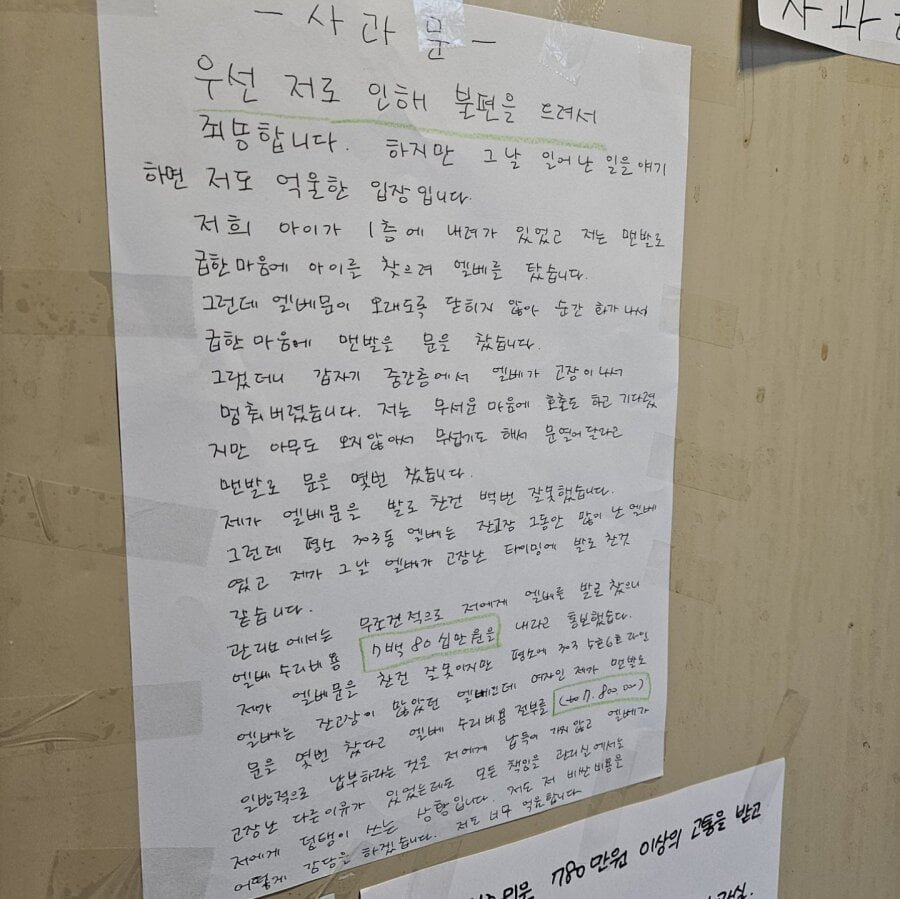 - 사 과 문 -
우선 저로 인해 불편을 드려서
죄송합니다. 하지만 그날 일어난 일을 얘기
하면 저도 억울한 입장입니다.
저희 아이가 1층에 내려가 있었고 저는 맨발로
급한마음에 아이를 찾으려 엘베를 탔습니다.
그런데 엘베문이 오래도록 닫히지 않아 순간 화가나서
급한마음에 맨발을 문을 찼습니다.
그랬더니 갑자기 중간층에서 엘베가 고장이나서
멈춰버렸습니다. 저는 무서운마음에 호출도 하고 기다렸
지만 아무도 오지않아서 무섭기도 해서 문열어달라고
맨발로 문을 몇번 찼습니다.
제가 엘베문을 발로 찬건 백번 잘못했습니다.
그런데 평소 303동 엘베는 잔고장 그동안 많이 난 엘베
였고 제가 그날 엘베가 고장난 타이밍에 발로 찬것
같습니다.
관리소에서는 무조건적으로 저에게 엘베를 발로 찼으니
엘베 수리비용 7백80십만원을 내라고 통보했습니다.
제가 엘베문을 찬건 잘못이지만 평소에 303 5호6호라인
엘베는 잔고장이 많았던 엘베인데 여자인 제가 맨발로
문을 몇번 찼다고 엘베 수리비용 전부를
일방적으로 납부하라는 것은 저에게 납득이 가지않고 엘베가
고장난 다른이유가 있었는데도 모든 책임을 관리실에서는
저에게 덤탱이 쓰는 상황입니다. 저도 저 비싼비용을
어떻게 감당을 하겠습니다. 저도 너무 억울합니다
사과
780만원 이상의 고통을 받고